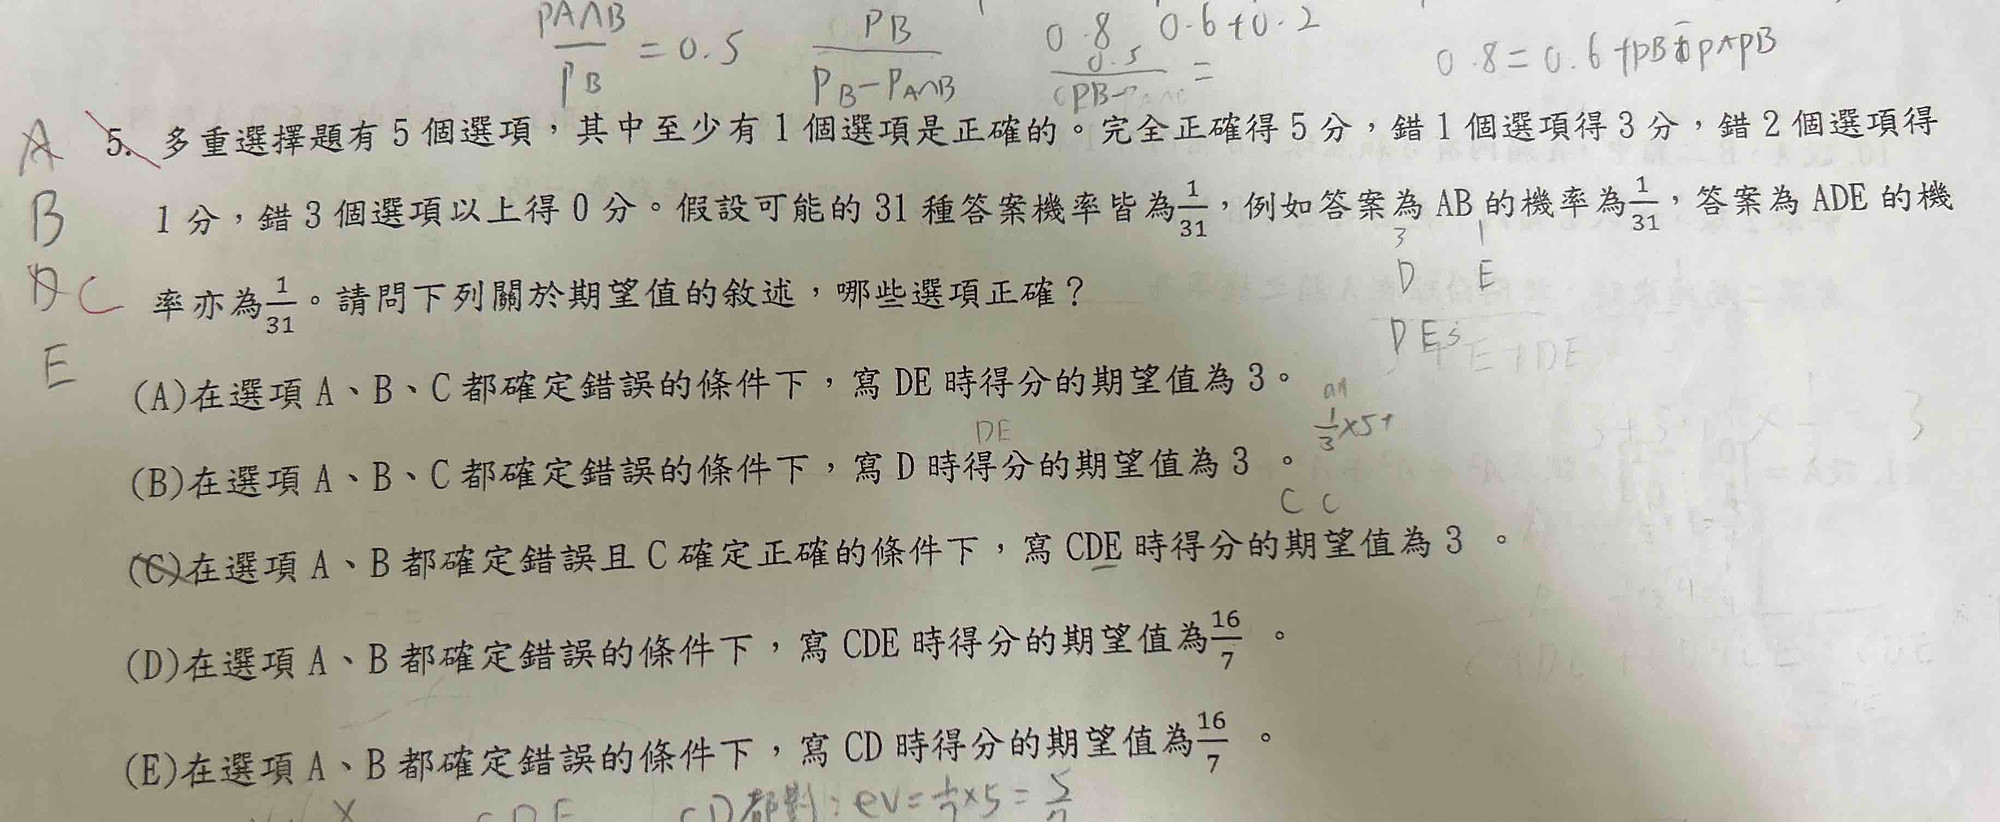 PA∩B/PB = 0.5 PB/(PB-PA∩B) 0.8 0.6+0.2
0.5 = 0.8=0.6+PB PAPB
A 5. 多重選擇題有 5 個選項，其中至少有 1 個選項是正確的。完全正確得 5 分，錯 1 個選項得 3 分，錯 2 個選項得
B 1 分，錯 3 個選項以上得 0 分。假設可能的 31 種答案機率皆為1/31，例如答案為 AB 的機率為1/31，答案為 ADE 的機
3 1
D C 率亦為1/31。請問下列關於期望值的敘述，哪些選項正確？ D E
E DE5
E+DE
(A)在選項 A、B、C 都確定錯誤的條件下，寫 DE 時得分的期望值為 3。
DE 1/3×5+
(B)在選項 A、B、C 都確定錯誤的條件下，寫 D 時得分的期望值為 3 。
C C
(C)在選項 A、B 都確定錯誤且 C 確定正確的條件下，寫 CDE 時得分的期望值為 3 。
(D)在選項 A、B 都確定錯誤的條件下，寫 CDE 時得分的期望值為16/7 。
(E)在選項 A、B 都確定錯誤的條件下，寫 CD 時得分的期望值為16/7 。
CDE CD都對：ev=1/7×5=5/7